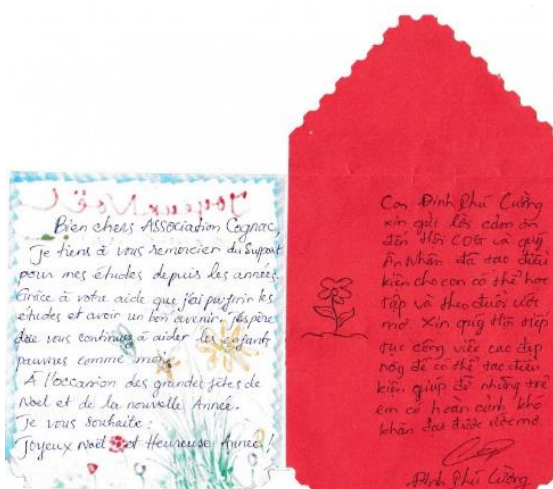 Joyeux Noël
Bien chers Association Cognac,
Je tiens à vous remercier du Support
pour mes études depuis les années.
Grâce à votre aide que j'ai pu finir les
études et avoir un bon devenir. J'espère
que vous continuez à aider les enfants
pauvres comme moi.
À l'occasion des grandes fêtes de
Noël et de la nouvelle Année.
Je vous souhaite:
Joyeux Noël et Heureuse Année!
Con Đinh Phú Cường
xin gửi lời cảm ơn
đến Hội COG và quý
Ân Nhân đã tạo điều
kiện cho con có thể học
tập và theo đuổi ước
mơ. Xin quý Hội tiếp
tục công việc cao đẹp
này để có thể tạo điều
kiện, giúp đỡ những trẻ
em có hoàn cảnh khó
khăn đạt được ước mơ.
Đinh Phú Cường